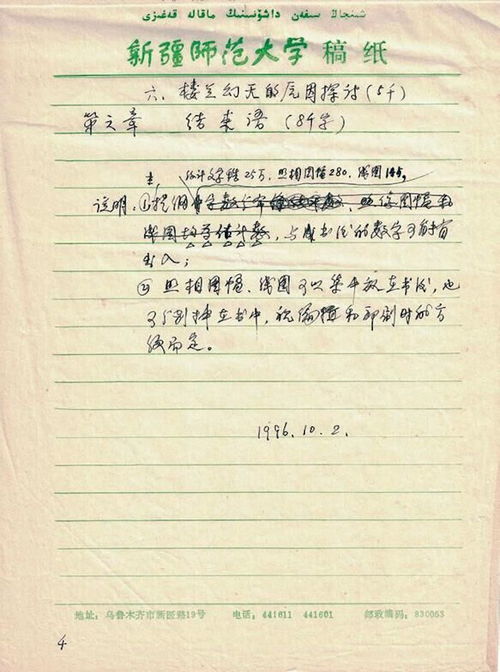 شىنجاڭ سىفەن داشۆسىنىڭ ماقالە قەغىزى
新疆师范大学 稿纸
六、楼兰幻灭的原因探讨(5千)
第六章 结束语(8千字)
共计文字锥25万,照相图幅280,线图145。
说明:①提纲中 数字 照像图幅和
线图均导估计数,与成书后的数字可能有
出入;
② 照相图幅、线图可以集中放在书后,也
可分别插在书中,视编辑和印刷时的方
便而定。
1996.10.2.
地址:乌鲁木齐市新医路19号 电话:441611 441601 邮政编码:830053
4